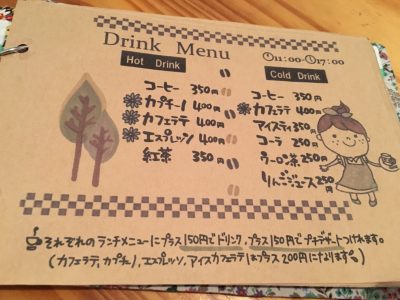 Drink Menu
11:00~17:00
Hot Drink
コーヒー 350円
カプチーノ 400円
カフェラテ 400円
エスプレッソ 400円
紅茶 350円
Cold Drink
コーヒー 350円
カフェラテ 400円
アイスティ 350円
コーラ 250円
ウーロン茶 250円
りんごジュース 250円
それぞれのランチメニューにプラス150円でドリンク、プラス150円でプチデザートつけれます。
(カフェラテ、カプチーノ、エスプレッソ、アイスカフェラテはプラス200円になります)